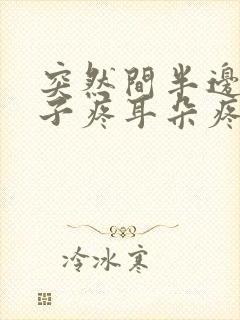 突然間半邊
子疼耳朵疼
冷冰寒